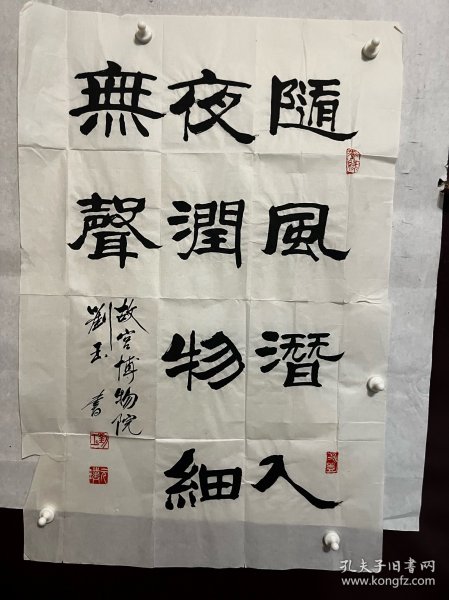 隨風潛入
夜潤物細
無聲
故宮博物院
劉玉書
孔夫子旧书网
www.kongfz.com